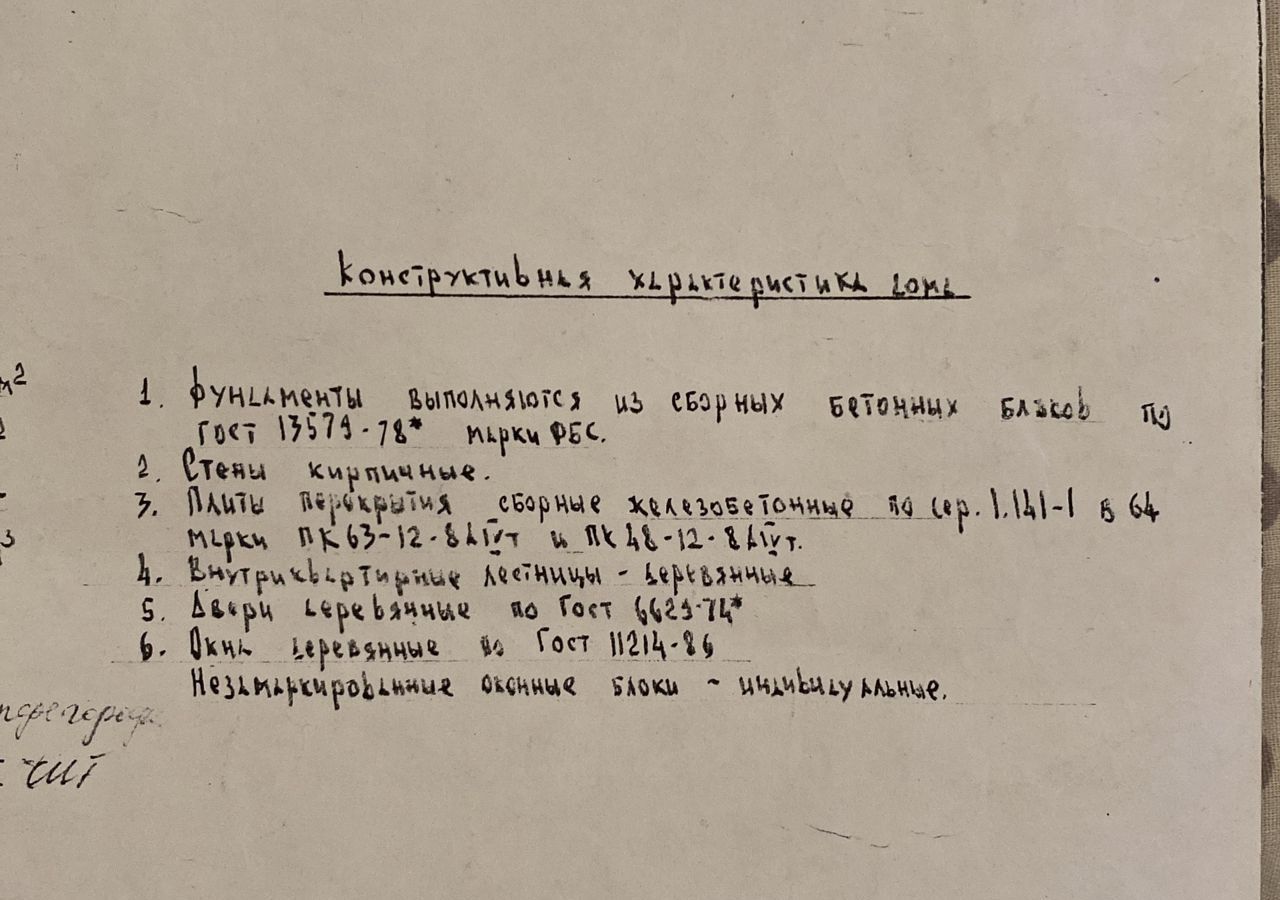 Конструктивная характеристика дома
1. Фундаменты выполняются из сборных бетонных блоков по
Гост 13579-78* марки ФБС.
2. Стены кирпичные.
3. Плиты перекрытия сборные железобетонные по сер. 1.141-1 в 64
марки ПК63-12-8АIVт и ПК48-12-8АIVт.
4. Внутриквартирные лестницы - деревянные
5. Двери деревянные по Гост 6629-74*
6. Окна деревянные по Гост 11214-86
Незамаркированные оконные блоки - индивидуальные.